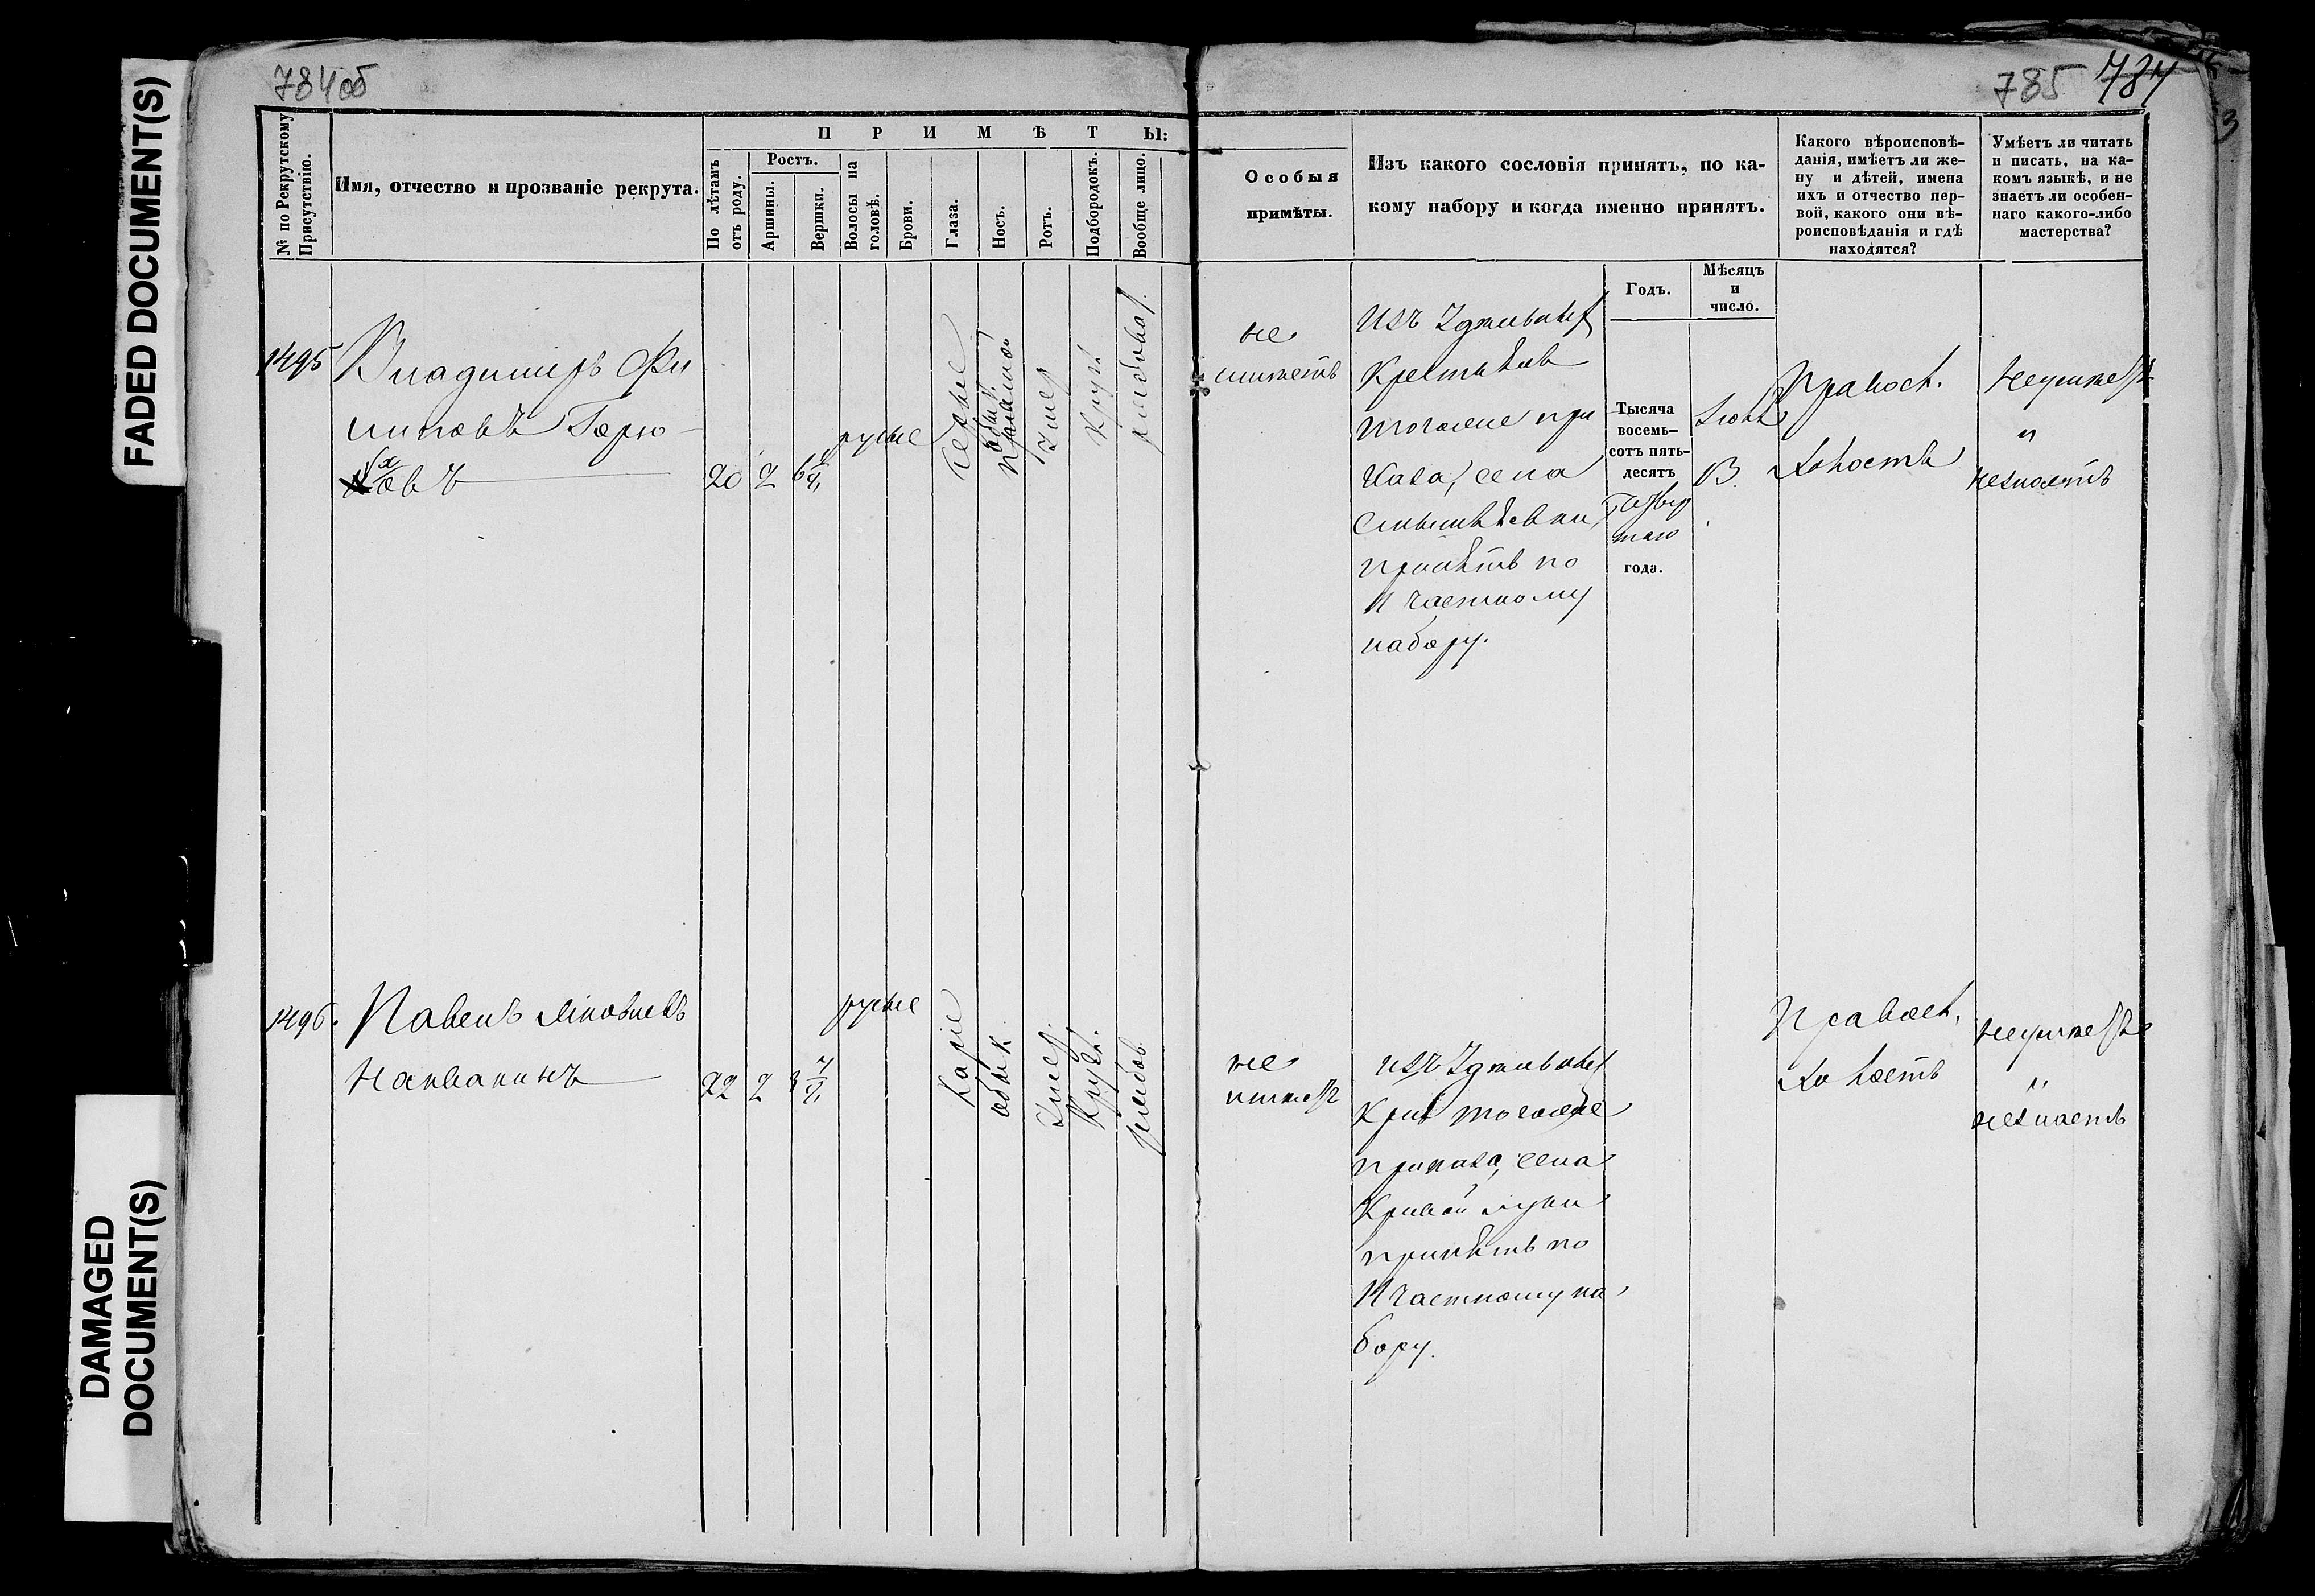 FADED DOCUMENT(S)
DAMAGED
DOCUMENT(S)
784об
785 787
3
№ по Рекрутскому
Присутствію.
Имя, отчество и прозваніе рекрута.
ПРИМѢТЫ:
По лѣтамъ
отъ роду.
Ростъ.
Аршины.
Вершки.
Волосы на
головѣ.
Брови.
Глаза.
Носъ.
Ротъ.
Подбородокъ.
Вообще лицо.
Особыя
примѣты.
Изъ какого сословія принятъ, по ка-
кому набору и когда именно принятъ.
Годъ.
Мѣсяцъ
и
число.
Какого вѣроисповѣ-
данія, имѣетъ ли же-
ну и дѣтей, имена
ихъ и отчество пер-
вой, какого они вѣ-
роисповѣданія и гдѣ
находятся?
Умѣетъ ли читать
и писать, на ка-
комъ языкѣ, и не
знаетъ ли особен-
наго какого-либо
мастерства?
1495
Владимиръ Фи
липовъ Горю
ховъ
20
2
6
русые
Рябова
не
имѣетъ
Изъ
Крестьянъ
при
каза, села
принятъ по
11 частному
набору.
Тысяча
восемь-
сотъ пять-
десятъ
года.
13.
Правос.
Холостъ
Неумѣетъ
"
незнаетъ
1496.
Павелъ Яковлевъ
22
2
3
русые
Каріе
обык
Кругл.
не
имѣетъ
изъ
приказа, села
Кривой луки
принятъ по
11 частному на
бору.
Правос.
Холостъ
неумѣетъ
"
незнаетъ